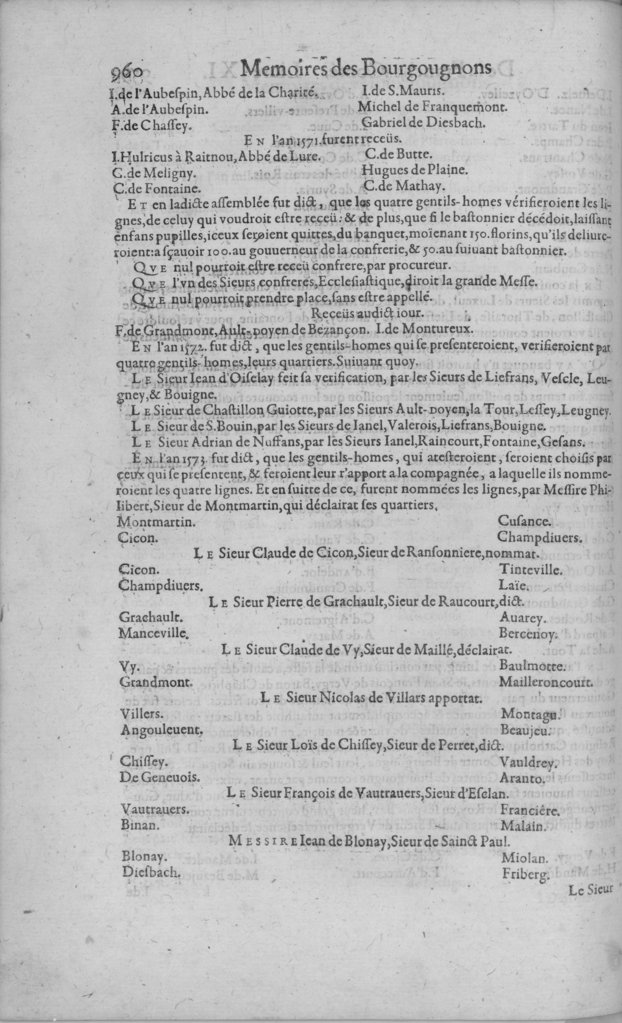 960 Memoires des Bourgougnons
I.de l'Aubespin, Abbé de la Charité. I.de S.Mauris.
A.de l'Aubespin. Michel de Franquemont.
F.de Chassey. Gabriel de Diesbach.
EN l'an 1571.furent receüs.
I.Hulricus à Raitnou, Abbé de Lure. C.de Butte.
C.de Meligny. Hugues de Plaine.
C.de Fontaine. C.de Mathay.
ET en ladicte assemblée fut dict, que les quatre gentils-homes vérifieroient les li-
gnes,de celuy qui voudroit estre receü:& de plus,que si le bastonnier décédoit,laissant
enfans pupilles,iceux seroient quittes,du banquet,moïenant 150.florins,qu'ils deliure-
roient:a sçauoir 100.au gouuerneur de la confrerie,& 50.au suiuant bastonnier.
QVE nul pourroit estre receü confrere,par procureur.
QVE l'vn des Sieurs confreres,Ecclesiastique,diroit la grande Messe.
QVE nul pourroit prendre place,sans estre appellé.
Receüs audict iour.
F.de Grandmont,Ault-doyen de Bezançon. I.de Montureux.
EN l'an 1572. fut dict, que les gentils-homes qui se presenteroient, verifieroient par
quatre gentils-homes,leurs quartiers.Suiuant quoy.
LE Sieur Iean d'Oiselay feit sa verification, par les Sieurs de Liefrans, Vescle, Leu-
gney,& Bouigne.
LE Sieur de Chastillon Guiotte,par les Sieurs Ault-doyen,la Tour,Lessey,Leugney.
LE Sieur de S.Bouin,par les Sieurs de Ianel,Valerois,Liefrans,Bouigne.
LE Sieur Adrian de Nuffans,par les Sieurs Ianel,Raincourt,Fontaine,Gesans.
EN l'an 1573. fut dict, que les gentils-homes, qui atesteroient, seroient choisis par
ceux qui se presentent,& feroient leur r'apport a la compagnée, a laquelle ils nomme-
roient les quatre lignes. Et en suitte de ce, furent nommées les lignes,par Messire Phi-
libert,Sieur de Montmartin,qui déclairat ses quartiers.
Montmartin. Cusance.
Cicon. Champdiuers.
LE Sieur Claude de Cicon,Sieur de Ransonniere,nommat.
Cicon. Tinteville.
Champdiuers. Laïe.
LE Sieur Pierre de Grachault,Sieur de Raucourt,dict.
Grachault. Auarey.
Manceville. Bercenoy.
LE Sieur Claude de Vy,Sieur de Maillé,déclairat.
Vy. Baulmotte.
Grandmont. Mailleroncourt.
LE Sieur Nicolas de Villars apportat.
Villers. Montagu.
Angouleuent. Beaujeu.
LE Sieur Loïs de Chissey,Sieur de Perret,dict.
Chissey. Vauldrey.
De Geneuois. Aranto.
LE Sieur François de Vautrauers,Sieur d'Esclan.
Vautrauers. Franciére.
Binan. Malain.
MESSIRE Iean de Blonay,Sieur de Sainct Paul.
Blonay. Miolan.
Diesbach. Friberg.
Le Sieur